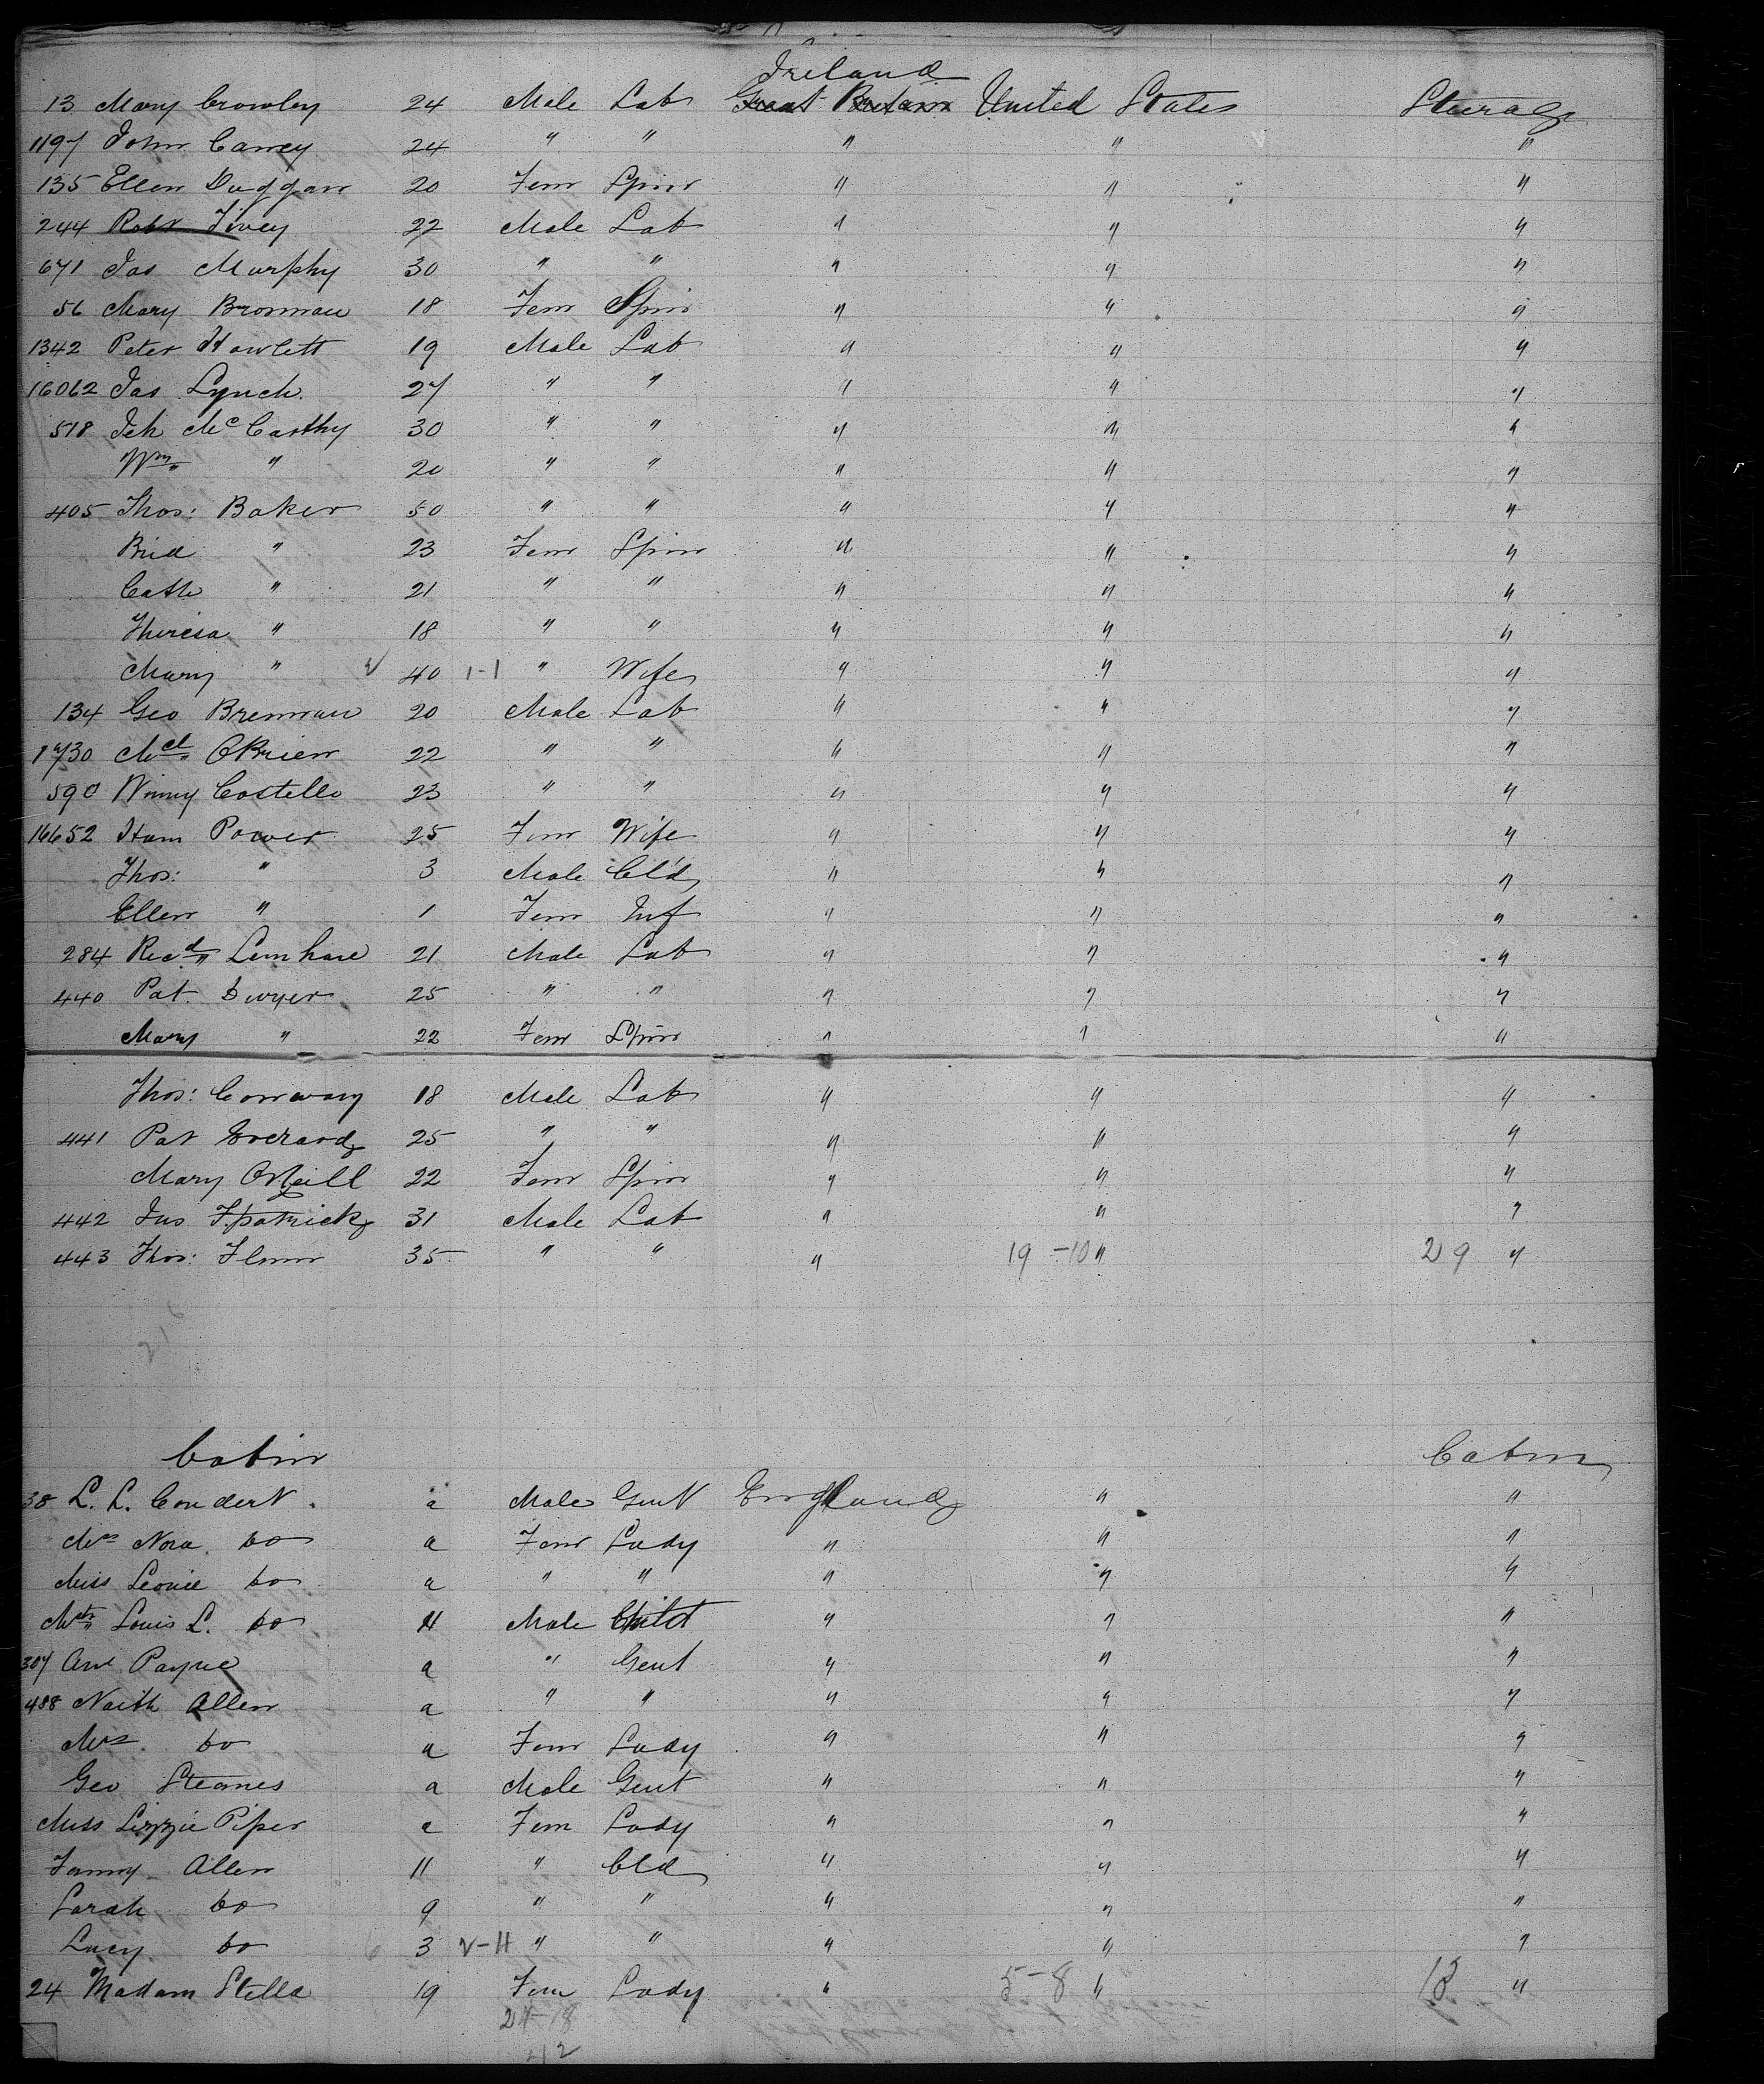 Ireland
13 Mary Crowley 24 Male Lab Great Britain United States Steerage
1197 John Carrey 24 " " " " "
135 Ellen Duggan 20 Fem Spin " " "
244 Robt Tivey 22 Male Lab " " "
671 Jas Murphy 30 " " " " "
56 Mary Bronnan 18 Fem Spin " " "
1342 Peter Howlett 19 Male Lab " " "
16062 Jas Lynch 27 " " " " "
518 Jeh McCarthy 30 " " " " "
Wm " 20 " " " " "
405 Thos: Baker 50 " " " " "
Brid " 23 Fem Spin " " "
Cath " 21 " " " " "
Theresa " 18 " " " " "
Mary " 40 1-1 " Wife " " "
134 Geo Brennan 20 Male Lab " " "
1730 Mcl OBrien 22 " " " " "
590 Winny Costello 23 " " " " "
16652 Han Power 25 Fem Wife " " "
Thos: " 3 Male Cld " " "
Ellen " 1 Fem Inf " " "
284 Ricd 21 Male Lab " " "
440 Pat Dwyer 25 " " " " "
Mary " 22 Fem Spin " " "
Thos: Conway 18 Male Lab " " "
441 Pat Everard 25 " " " " "
Mary ONeill 22 Fem Spin " " "
442 Jno Fpatrick 31 Male Lab " " "
443 Thos: Flynn 35 " " " 19-10 " 29 "
Cabin Cabin
38 L. L. Coudert a Male Gent England " "
Mrs Nora Do a Fem Lady " " "
Miss Leonie Do a " " " " "
Mstr Louis L. Do 11 Male Child " " "
307 Payne a " Gent " " "
488 Naith Allen a " " " " "
Mrs Do a Fem Lady " " "
Geo Stearnes a Male Gent " " "
Miss Lizzie Piper a Fem Lady " " "
Fanny Allen 11 " Cld " " "
Sarah Do 9 " " " " "
Lucy Do 3 " " " " "
24 Madam Stella 19 Fem Lady " 5-8 " 13 "
24-18
42